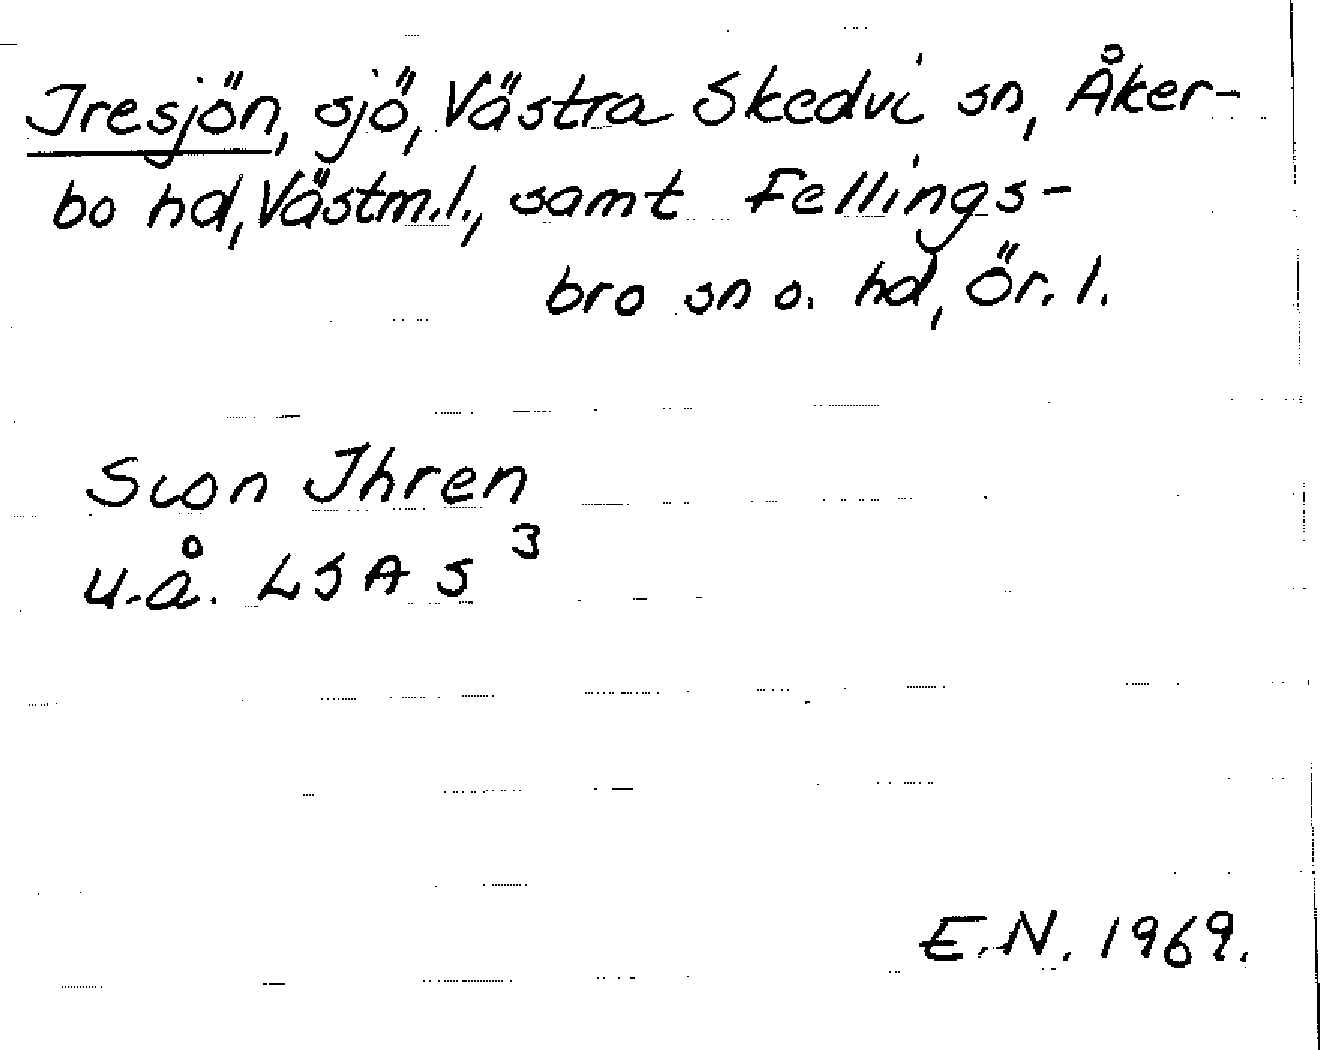 Iresjön, sjö, Västra Skedvi sn, Åker-
bo hd, Västm.l., samt Fellings-
bro sn o. hd, Ör. l.
Sion Ihren
u.å. LSA S 3
E.N. 1969.